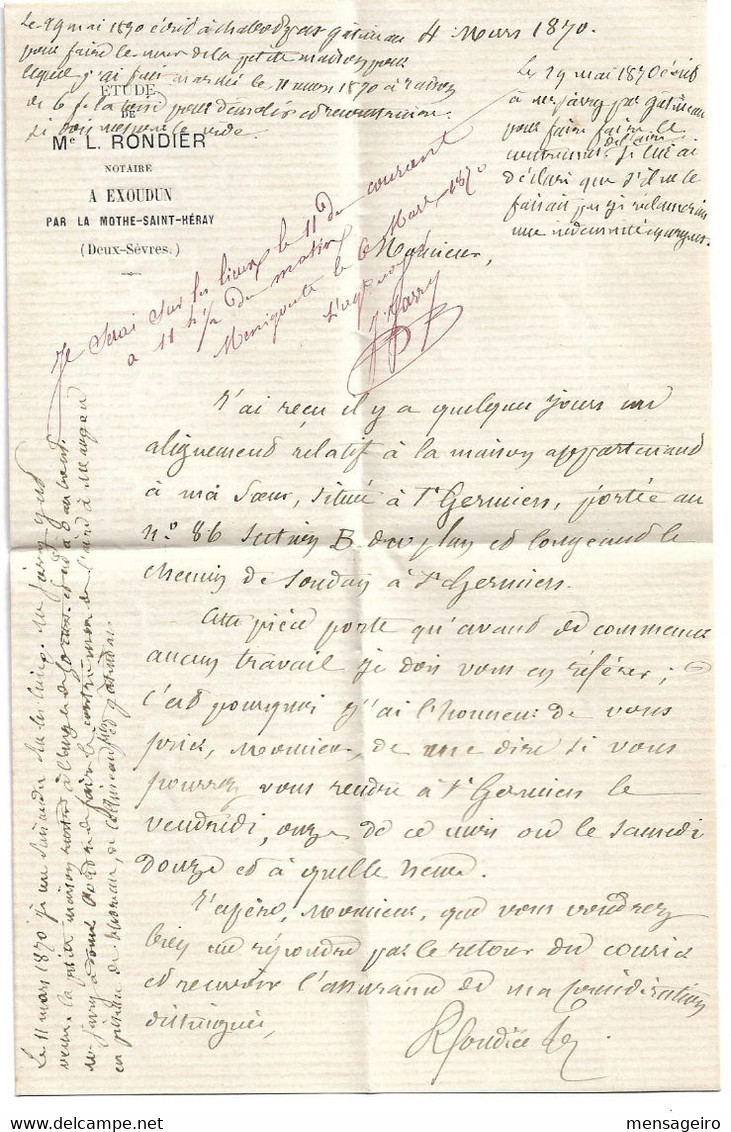 Le 29 mai 1870 écrit à chabot par gatineau
pour faire le mur de la petite maison pour
lequel j'ai fait marché le 11 mars 1870 à raison
de 6 f. la toise pour démolir et reconstruire.
4 Mars 1870.
Le 29 mai 1870 écrit
à mr jarry par gatineau
pour faire faire le
contremur de l'aire je lui ai
déclaré que s'il ne le
faisait pas je réclamerais
une indemnité
ETUDE
DE
Me L. RONDIER
NOTAIRE
A EXOUDUN
PAR LA MOTHE-SAINT-HÉRAY
(Deux-Sèvres.)
Je serai sur les lieux le 11 du courant
à 11 h 1/2 du matin
Menigoute le 6 Mars 1870
L'agent
Jarry
Monsieur,
J'ai reçu il y a quelques jours un
alignement relatif à la maison appartenant
à ma Sœur, située à St Germier, portée au
no. 86 section B du plan et longeant le
chemin de Soudan à St Germier.
Cette pièce porte qu'avant de commencer
aucun travail je dois vous en référer ;
c'est pourquoi j'ai l'honneur de vous
prier, Monsieur, de me dire si vous
pourrez vous rendre à St Germier le
vendredi, onze de ce mois ou le samedi
douze et à quelle heure.
J'espère, Monsieur, que vous voudrez
bien me répondre par le retour du courier
et recevoir l'assurance de ma considération
distinguée,
Rondier
Le 11 mars 1870 je me suis rendu sur les lieux. mr jarry
mr jarry a donné l'ordre de faire le contremur de l'aire à